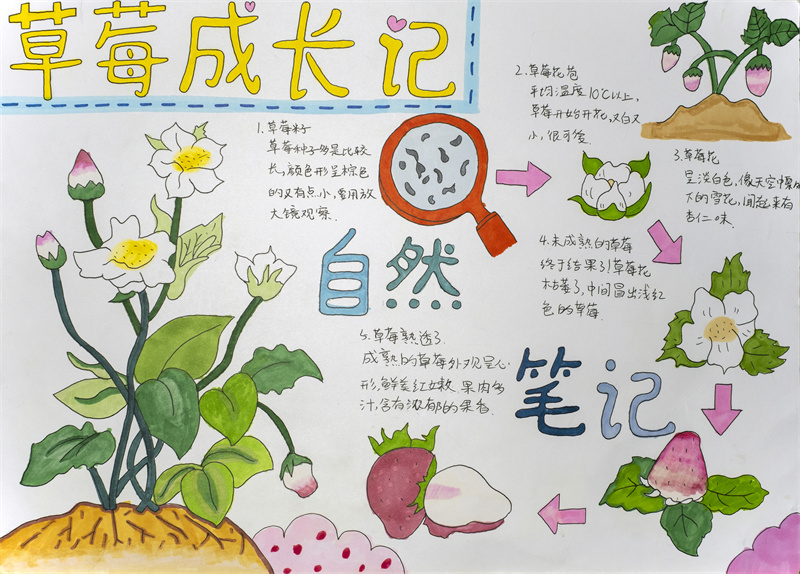 草莓成长记
1.草莓籽
草莓种子多是比较
长,颜色形呈棕色
的又有点小,要用放
大镜观察.
2.草莓花苞
平均温度10℃以上,
草莓开始开花,又白又
小,很可爱.
3.草莓花
呈淡白色,像天空中飘
下的雪花,闻起来有
杏仁味.
自然
4.未成熟的草莓
终于结果了!草莓花
枯萎了,中间冒出浅红
色的草莓.
5.草莓熟透了.
成熟的草莓外观呈心
形,鲜美红嫩、果肉多
汁,含有浓郁的果香.
笔记